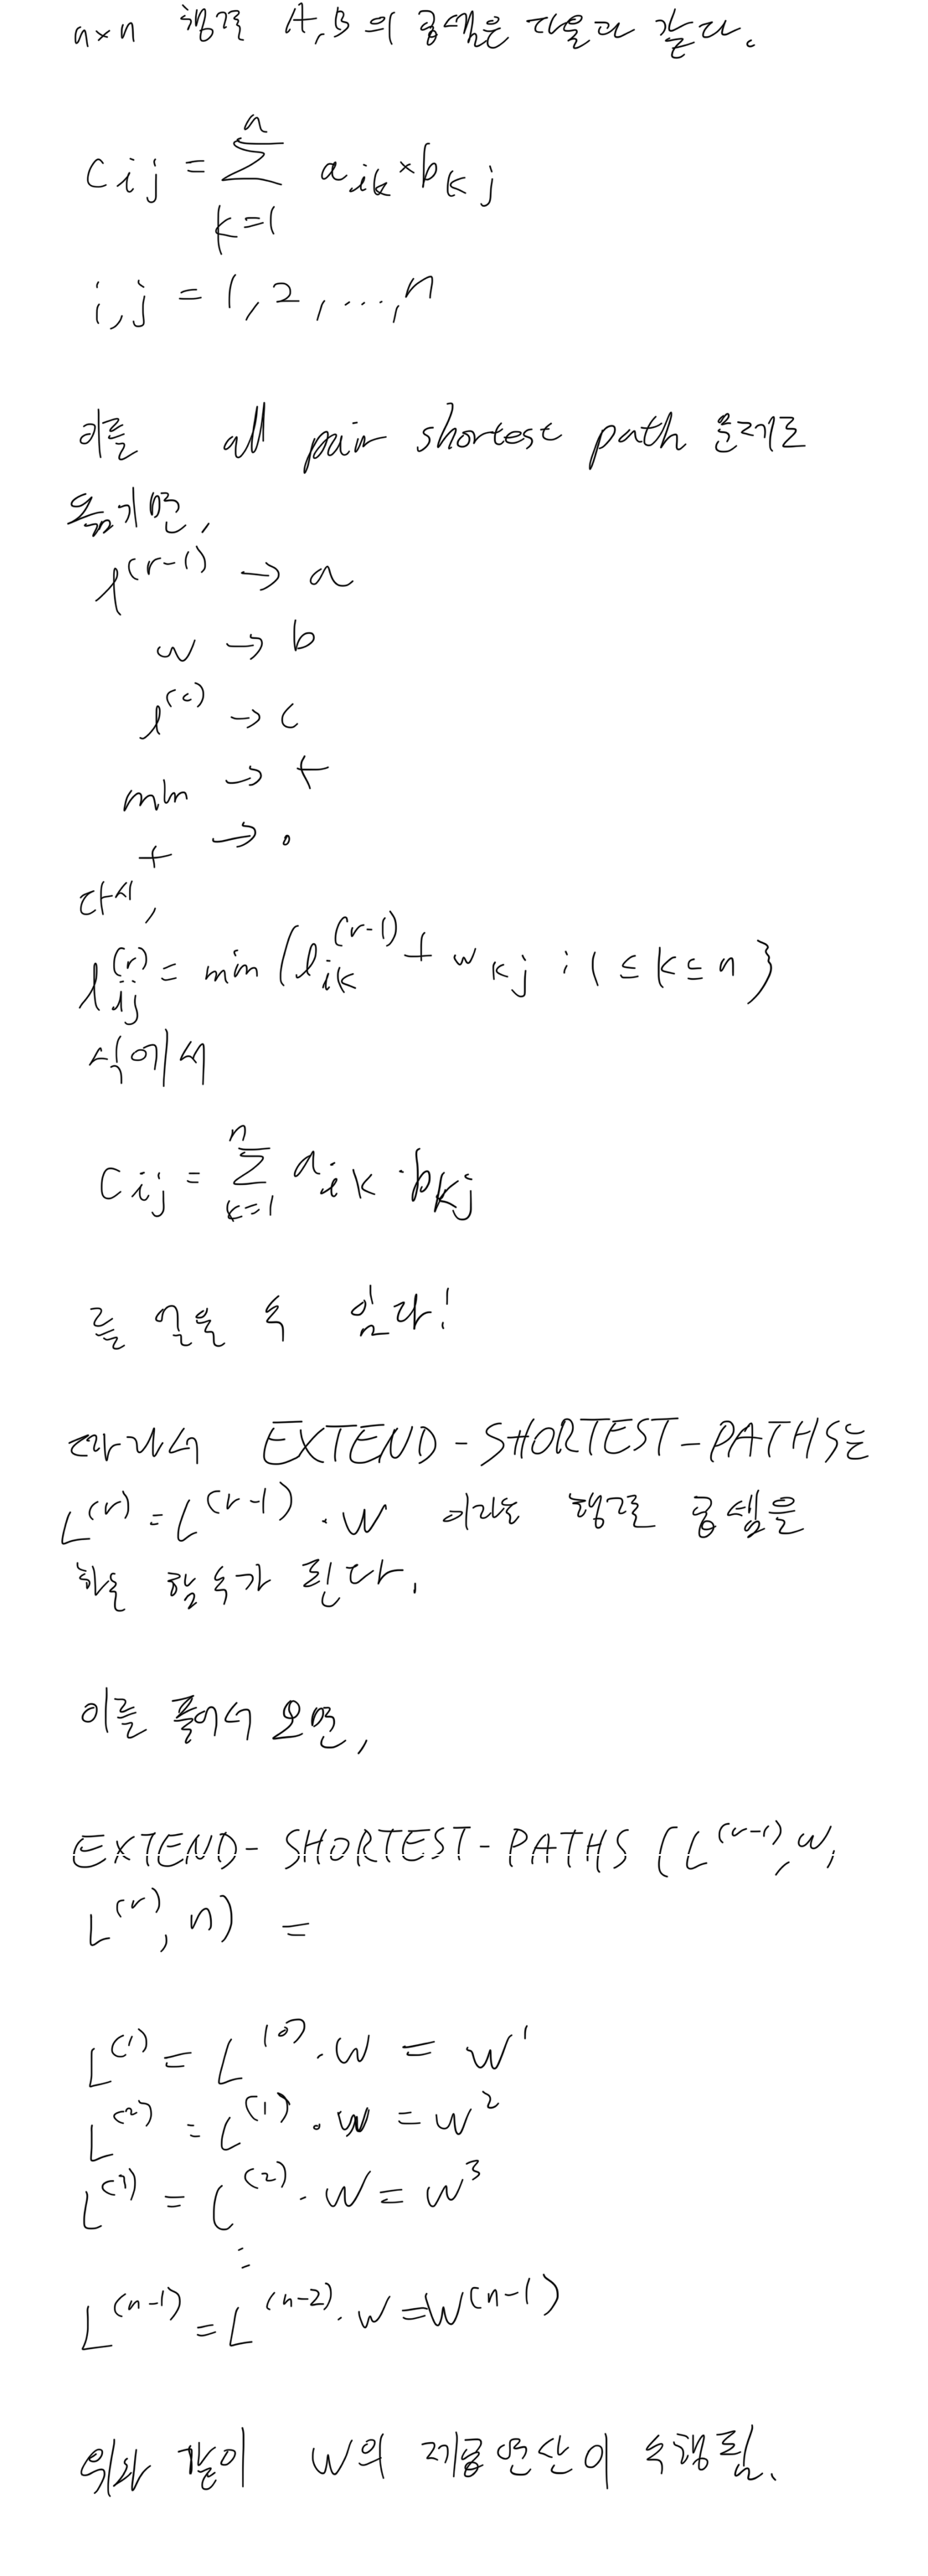 n×n 행렬 A,B의 곱셈은 다음과 같다.
cij = n∑k=1 aik×bkj
i,j = 1,2,...,n
이를 all pair shortest path 문제로
옮기면,
l(r-1) → a
w → b
l(c) → c
min → +
+ → ·
다시,
lij(r) = min(lik(r-1) + wkj : 1 ≤ k ≤ n}
식에서
cij = n∑k=1 aik·bkj
를 얻을 수 있다!
따라서 EXTEND-SHORTEST-PATHS는
L(r) = L(r-1) · W 이라는 행렬 곱셈을
하는 함수가 된다.
이를 풀어서 보면,
EXTEND-SHORTEST-PATHS (L(r-1), W,
L(r), n) =
L(1) = L(0) · W = W1
L(2) = L(1) · W = W2
L(3) = L(2) · W = W3
:
L(n-1) = L(n-2) · W = W(n-1)
위와 같이 W의 제곱연산이 수행됨.